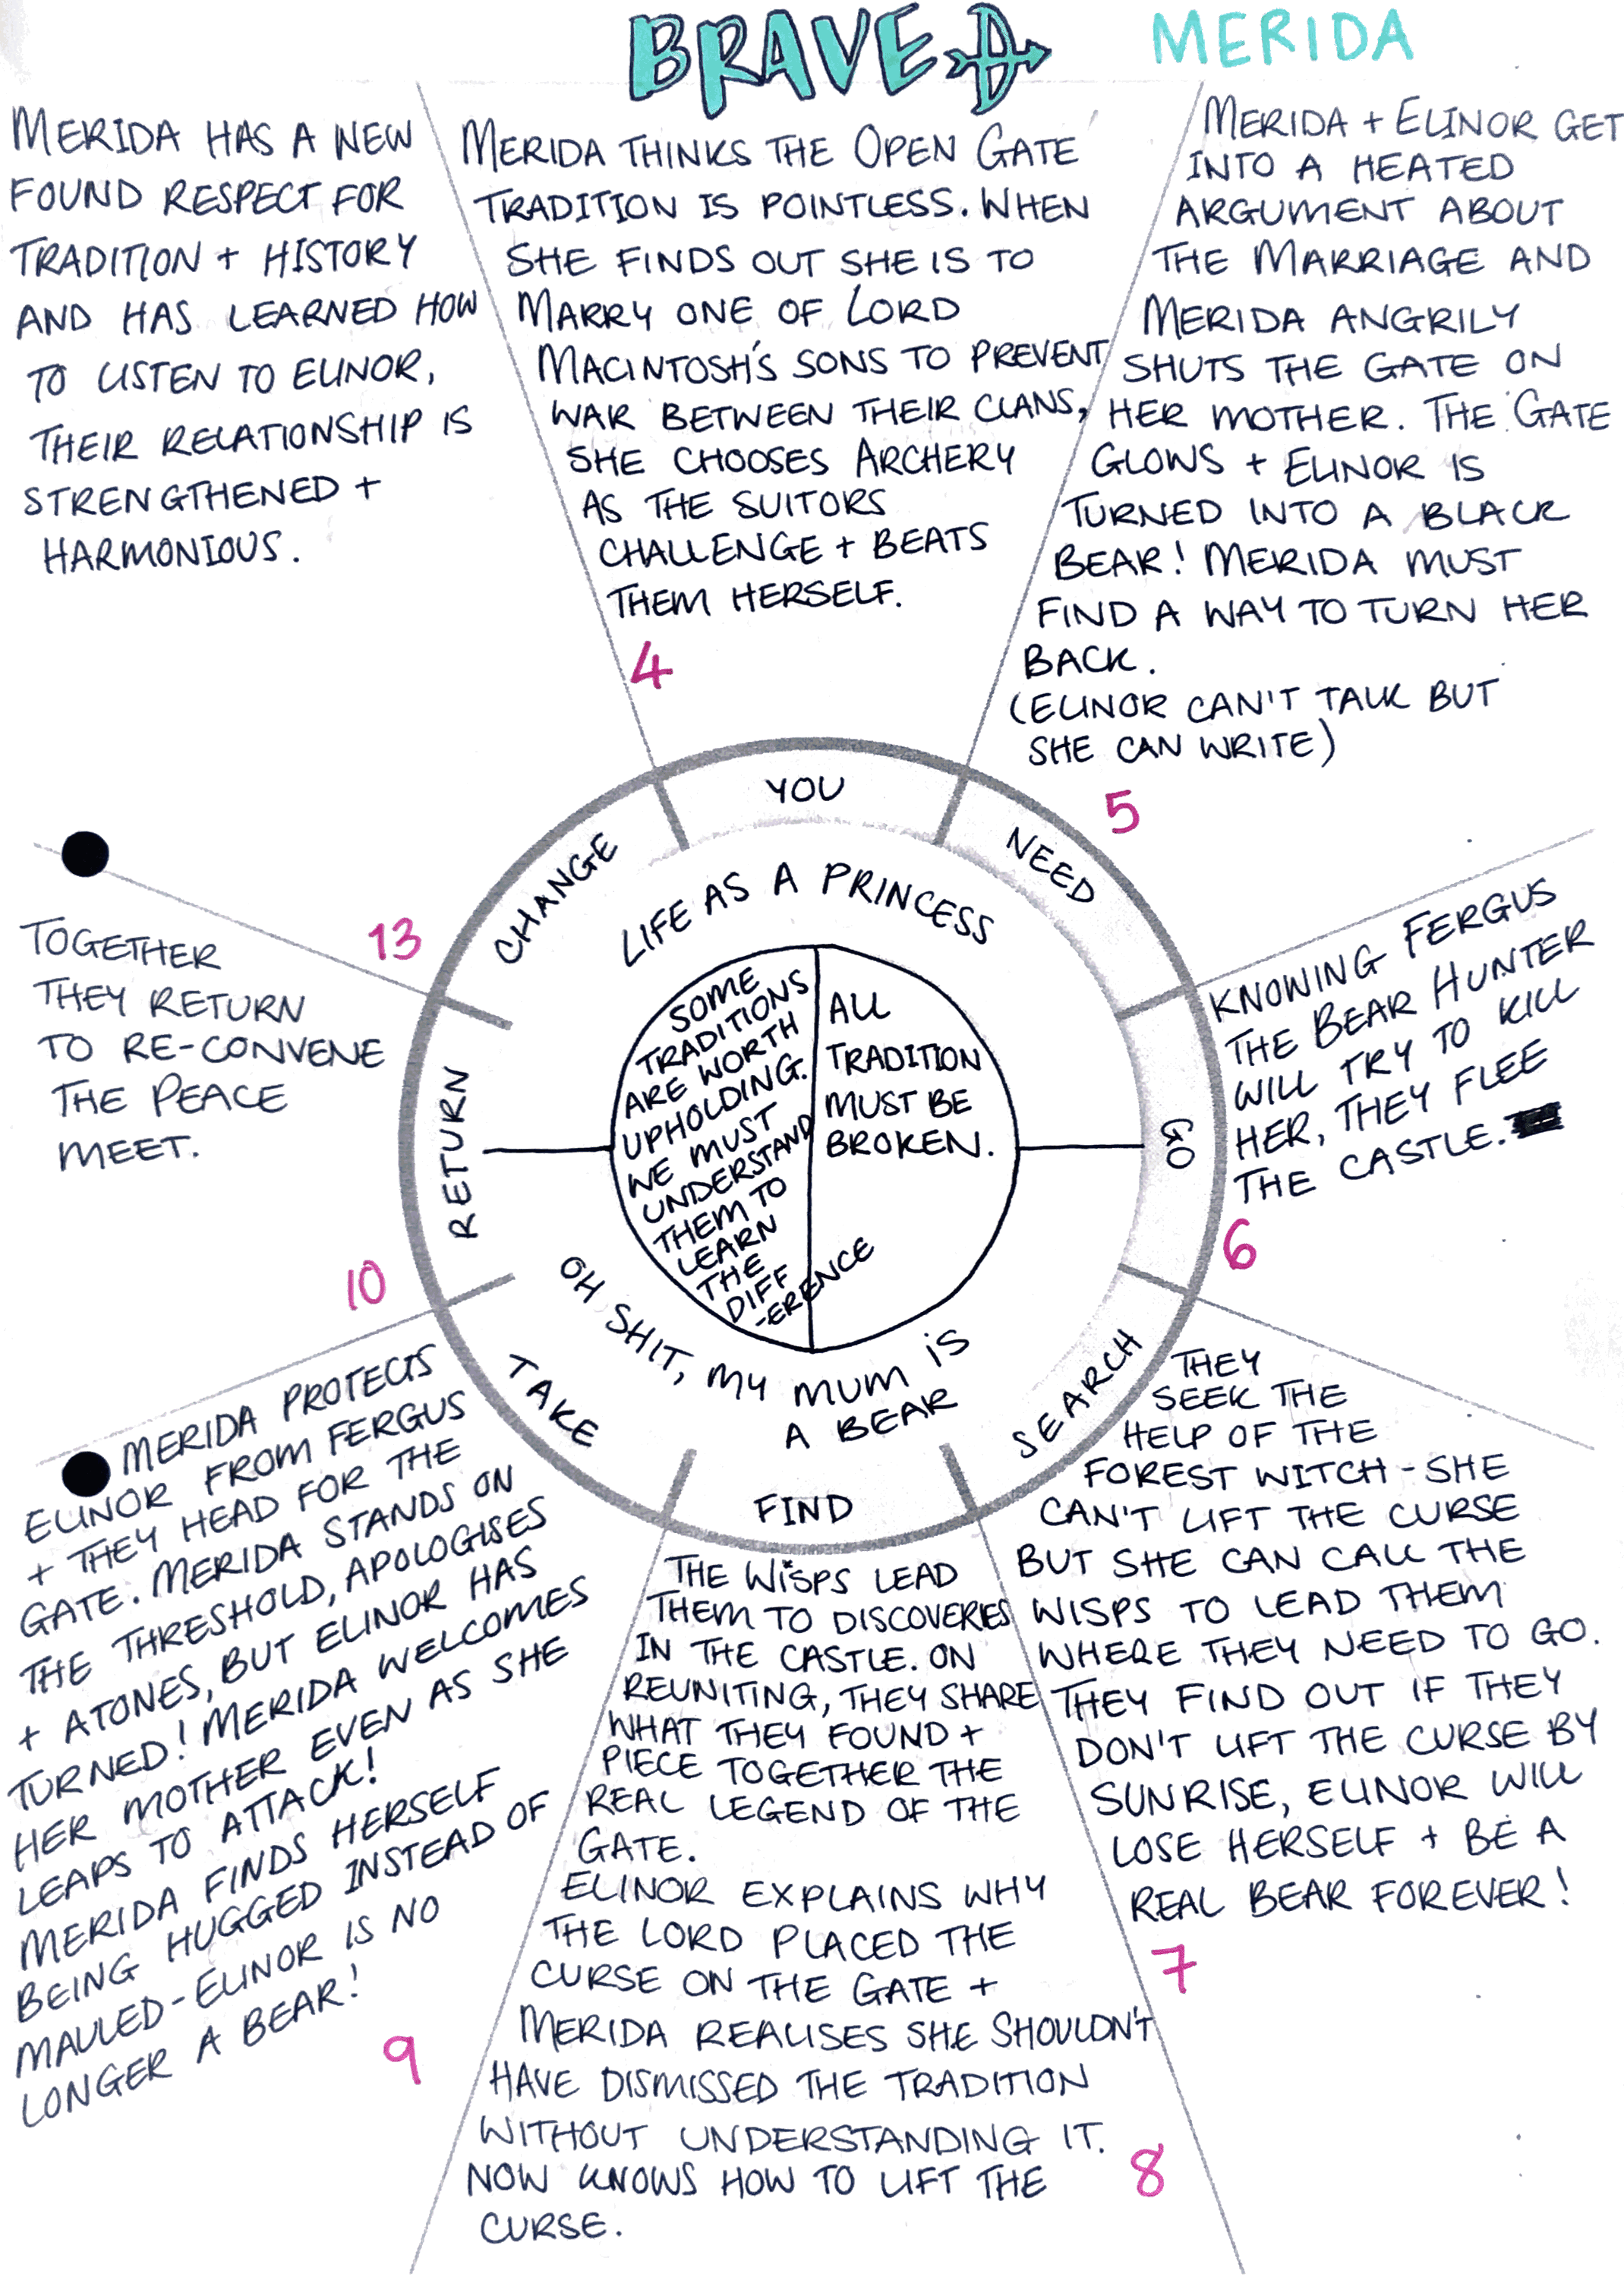 BRAVE
MERIDA
MERIDA THINKS THE OPEN GATE
TRADITION IS POINTLESS. WHEN
SHE FINDS OUT SHE IS TO
MARRY ONE OF LORD
MACINTOSH'S SONS TO PREVENT
WAR BETWEEN THEIR CLANS,
SHE CHOOSES ARCHERY
AS THE SUITORS
CHALLENGE + BEATS
THEM HERSELF.
4
MERIDA + ELINOR GET
INTO A HEATED
ARGUMENT ABOUT
THE MARRIAGE AND
MERIDA ANGRILY
SHUTS THE GATE ON
HER MOTHER. THE GATE
GLOWS + ELINOR IS
TURNED INTO A BLACK
BEAR! MERIDA MUST
FIND A WAY TO TURN HER
BACK.
(ELINOR CAN'T TALK BUT
SHE CAN WRITE)
5
KNOWING FERGUS
THE BEAR HUNTER
WILL TRY TO KILL
HER, THEY FLEE
THE CASTLE.
6
THEY
SEEK THE
HELP OF THE
FOREST WITCH - SHE
CAN'T LIFT THE CURSE
BUT SHE CAN CALL THE
WISPS TO LEAD THEM
WHERE THEY NEED TO GO.
THEY FIND OUT IF THEY
DON'T LIFT THE CURSE BY
SUNRISE, ELINOR WILL
LOSE HERSELF + BE A
REAL BEAR FOREVER!
7
THE WISPS LEAD
THEM TO DISCOVERIES
IN THE CASTLE. ON
REUNITING, THEY SHARE
WHAT THEY FOUND +
PIECE TOGETHER THE
REAL LEGEND OF THE
GATE.
ELINOR EXPLAINS WHY
THE LORD PLACED THE
CURSE ON THE GATE +
MERIDA REALISES SHE SHOULDN'T
HAVE DISMISSED THE TRADITION
WITHOUT UNDERSTANDING IT.
NOW KNOWS HOW TO LIFT THE
CURSE.
8
MERIDA PROTECTS
ELINOR FROM FERGUS
+ THEY HEAD FOR THE
GATE. MERIDA STANDS ON
THE THRESHOLD, APOLOGISES
+ ATONES, BUT ELINOR HAS
TURNED! MERIDA WELCOMES
HER MOTHER EVEN AS SHE
LEAPS TO ATTACK!
MERIDA FINDS HERSELF
BEING HUGGED INSTEAD OF
MAULED - ELINOR IS NO
LONGER A BEAR!
9
TOGETHER
THEY RETURN
TO RE-CONVENE
THE PEACE
MEET.
10
MERIDA HAS A NEW
FOUND RESPECT FOR
TRADITION + HISTORY
AND HAS LEARNED HOW
TO LISTEN TO ELINOR,
THEIR RELATIONSHIP IS
STRENGTHENED +
HARMONIOUS.
13
YOU
NEED
GO
SEARCH
FIND
TAKE
RETURN
CHANGE
LIFE AS A PRINCESS
OH SHIT, MY MUM IS
A BEAR
ALL
TRADITION
MUST BE
BROKEN.
SOME
TRADITIONS
ARE WORTH
UPHOLDING.
WE MUST
UNDERSTAND
THEM TO
LEARN
THE
DIFF
-ERENCE